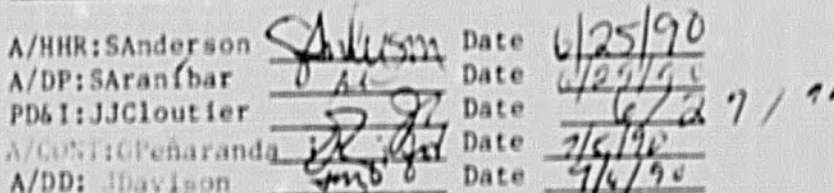 A/HHR:SAnderson SAnderson Date 6/25/90
A/DP:SAraníbar Date 6/29/90
PD&I:JJCloutier Date 6/27/
A/CONT:GPeñaranda Date 7/5/90
A/DD: JDavison Date 7/6/90